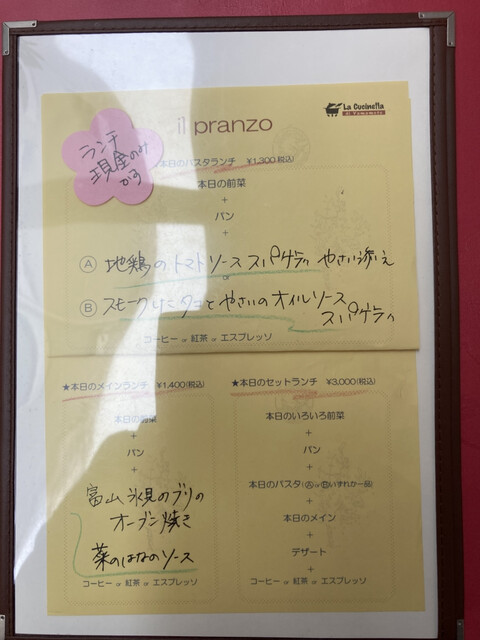 La Cucinella
di Yamamoto
il pranzo
ランチ
現金のみ
カヲ
本日のパスタランチ ¥1,300(税込)
本日の前菜
+
パン
+
Ⓐ 地鶏のトマトソース スパゲティ やさい添え
or
Ⓑ スモークしたタコとやさいのオイルソース
スパゲティ
コーヒー or 紅茶 or エスプレッソ
★本日のメインランチ ¥1,400(税込)
本日の前菜
+
パン
+
富山 氷見のブリの
オーブン焼き
菜のはなのソース
コーヒー or 紅茶 or エスプレッソ
★本日のセットランチ ¥3,000(税込)
本日のいろいろ前菜
+
パン
+
本日のパスタ(Ⓐ or Ⓑいずれか一品)
+
本日のメイン
+
デザート
+
コーヒー or 紅茶 or エスプレッソ